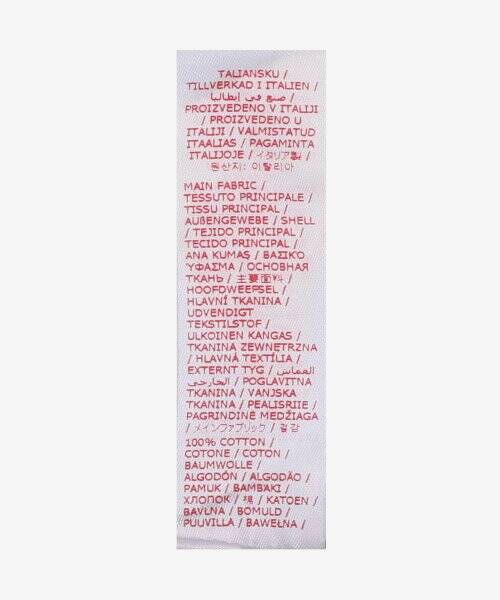 TALIANSKU /
TILLVERKAD I ITALIEN /
صنع في إيطاليا /
PROIZVEDENO V ITALIJI
/ PROIZVEDENO U
ITALIJI / VALMISTATUD
ITAALIAS / PAGAMINTA
ITALIJOJE / イタリア製 /
원산지: 이탈리아
MAIN FABRIC /
TESSUTO PRINCIPALE /
TISSU PRINCIPAL /
AUßENGEWEBE / SHELL
/ TEJIDO PRINCIPAL /
TECIDO PRINCIPAL /
ANA KUMAŞ / ΒΑΣΙΚΌ
ΎΦΑΣΜΑ / ОСНОВНАЯ
ТКАНЬ / 主要面料 /
HOOFDWEEFSEL /
HLAVNÍ TKANINA /
UDVENDIGT
TEKSTILSTOF /
ULKOINEN KANGAS /
TKANINA ZEWNĘTRZNA
/ HLAVNÁ TEXTÍLIA /
EXTERNT TYG / القماش
الخارجي / POGLAVITNA
TKANINA / VANJSKA
TKANINA / PEALISRIIE /
PAGRINDINĖ MEDŽIAGA
/ メインファブリック / 겉감
100% COTTON /
COTONE / COTON /
BAUMWOLLE /
ALGODÓN / ALGODÃO /
PAMUK / ΒΑΜΒΆΚΙ /
ХЛОПОК / 棉 / KATOEN /
BAVLNA / BOMULD /
PUUVILLA / BAWEŁNA /